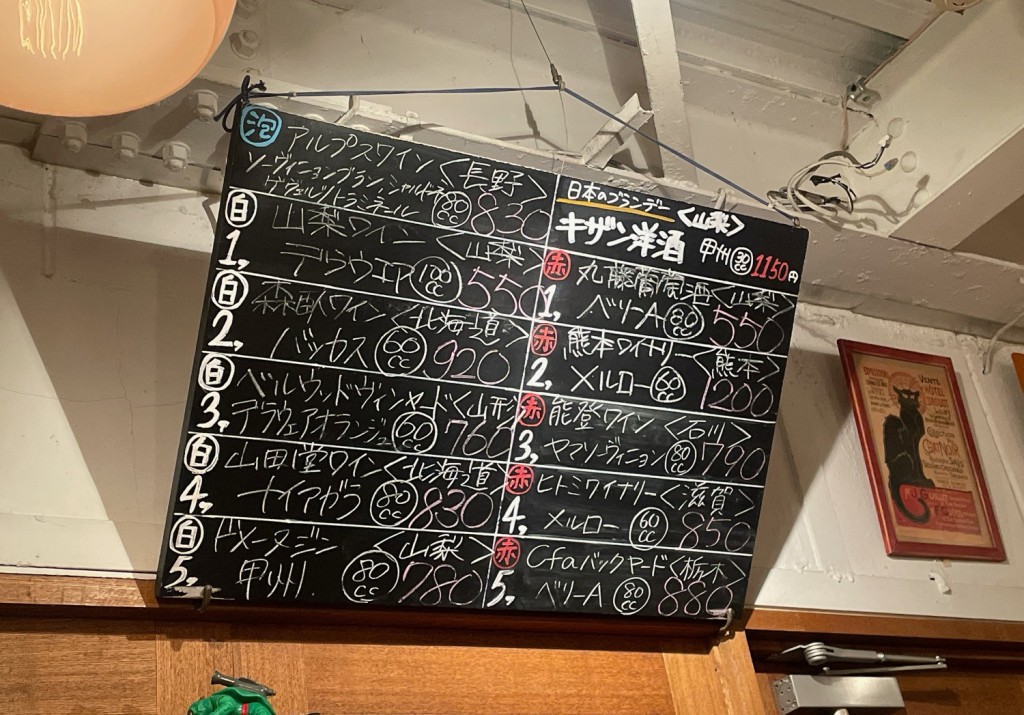 泡 アルプスワイン <長野>
ソーヴィニョンブラン,シャルドネ
ゲヴェルツトラミネール 80cc 830
白1, 山梨ワイン <山梨>
デラウエア 100cc 550
白2, 森田ワイン <北海道>
バッカス 60cc 920
白3, ベルウッドヴィンヤード <山形
デラウェアオランジュ 60cc 760
白4, 山田堂ワイン <北海道
ナイアガラ 80cc 830
白5, ドメーヌジン <山梨>
甲州. 80cc 780
日本のブランデー <山梨>
キザン洋酒 甲州 30cc 1150円
赤1, 丸藤葡萄酒 <山梨>
ベリーA 80cc 550
赤2, 熊本ワイナリー <熊本>
メルロー 60cc 1200
赤3, 能登ワイン <石川>
ヤマソーヴィニョン 80cc 790
赤4, ヒトミワイナリー <滋賀>
メルロー 60cc 850
赤5, Cfaバックヤード <栃木>
ベリーA 80cc 880
VENTE
HÔTEL
CHAT NOIR